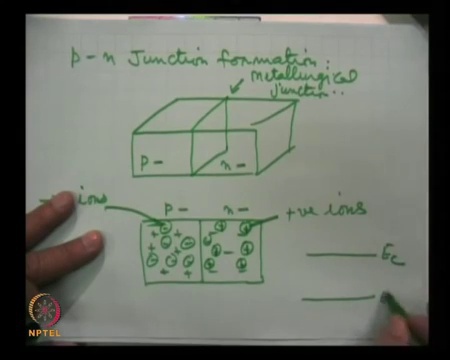 p-n Junction formation:
metallurgical
junction..
p- n-
ions p- n- +ve ions
- + + + + + +
Ec
NPTEL